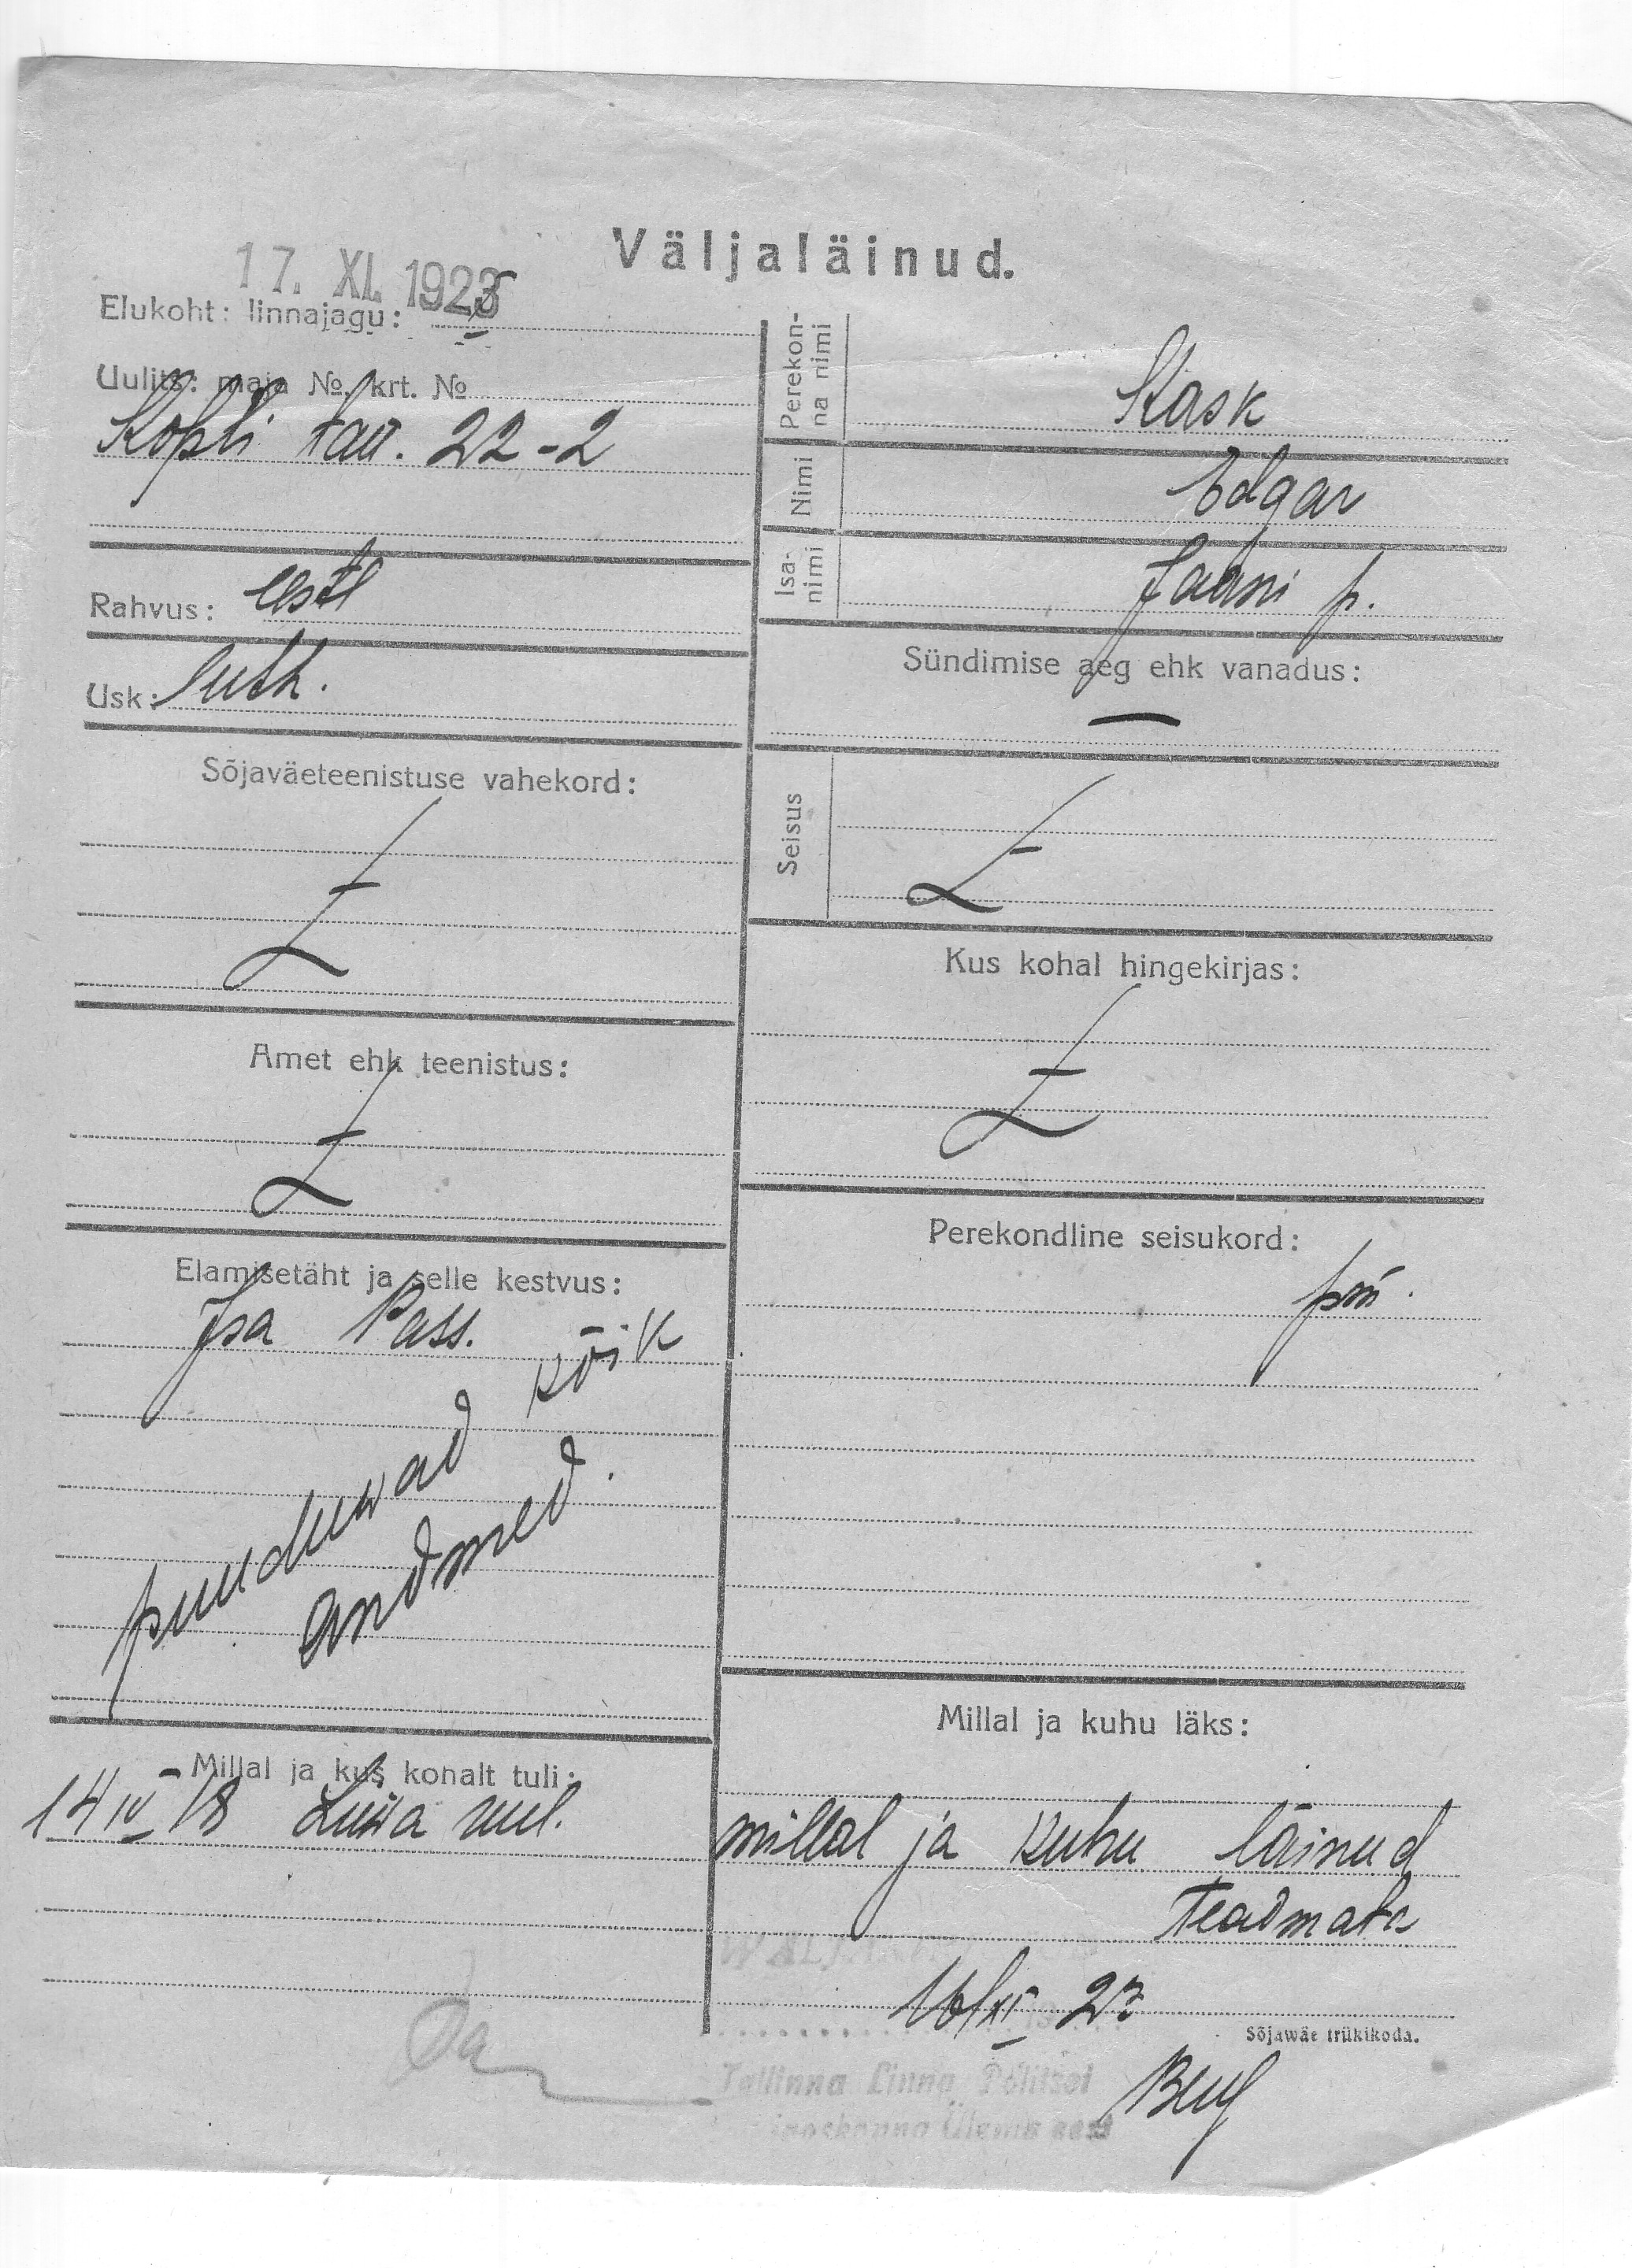 Väljaläinud.
17. XI. 1923
Elukoht: linnajagu:
Uulits: maja № krt. №
Kopli tän. 22-2
Rahvus: eestl
Usk: luth.
Sõjaväeteenistuse vahekord:
Amet ehk teenistus:
Elamisetäht ja selle kestvus:
Isa Pass.
puuduwad kõik
andmed.
Millal ja kus kohalt tuli:
14 IV 18 uul.
Perekon-
na nimi
Kask
Nimi
Edgar
Isa-
nimi
Jaani p.
Sündimise aeg ehk vanadus:
—
Seisus
Kus kohal hingekirjas:
Perekondline seisukord:
Millal ja kuhu läks:
millal ja kuhu läinud
Teadmata
16/XI 23
Sõjawäe trükikoda.
Tallinna Linna Politsei
Ülema eest